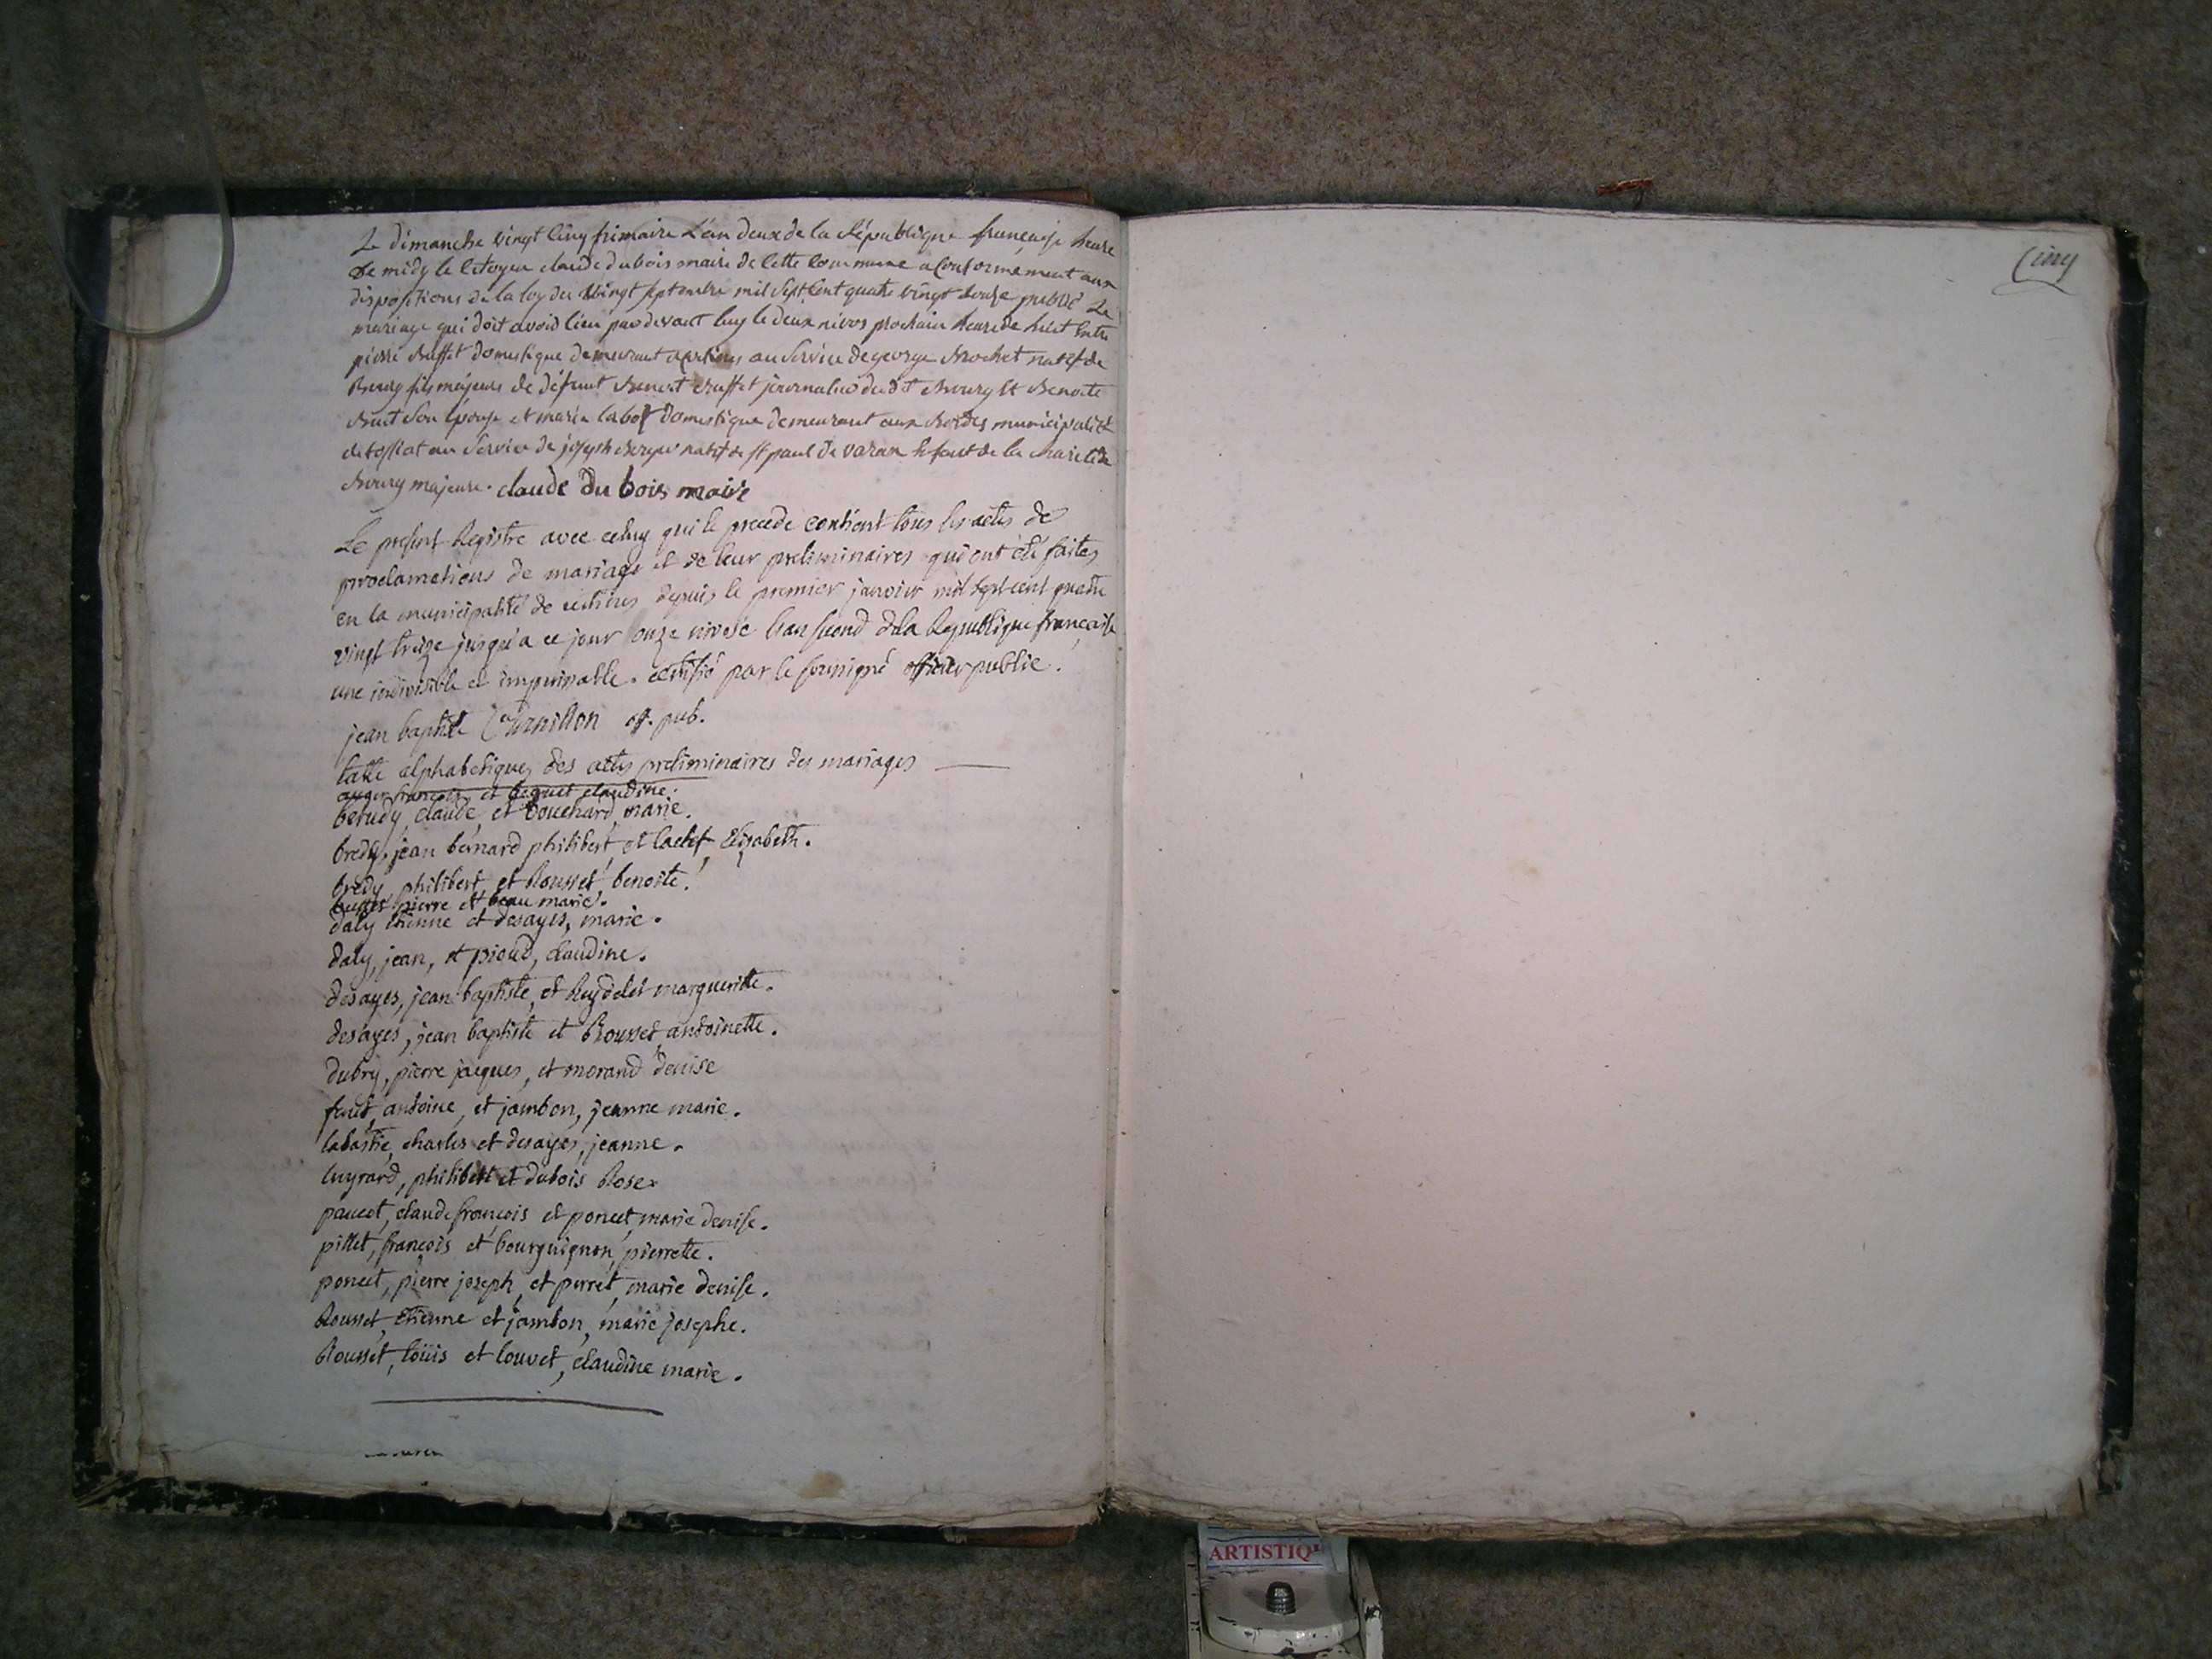 Le dimanche vingt Cinq frimaire L'an deux de la République françoise heure
de midy le Citoyen claude dubois maire de Cette Commune a Conformement aux
dispositions de la loy du vingt septembre mil Sept Cent quatre vingt douze publié Le
mariage qui doit avoir lieu pardevant luy le deux nivos prochain heure de huit Entre
pierre Buffet domestique demeurant a certines au Service de george Brochet natif de
Bourg fils majeure de défunt Benoit Buffet journalier du dt Bourg et Benoite
Buit Son épouse et marie labof domestique demeurant aux Bordes municipalité
de tossiat au Service de joseph Berger natif de st paul de varax Enfant de la charité de
Bourg majeure. claude Du bois maire
Le present Registre avec celuy qui le precede contient tous les actes de
proclamations de mariage et de leur preliminaires qui ont été faites
en la municipalité de certines depuis le premier janvier mil sept cent quatre
vingt treize jusqu'a ce jour onze nivose l'an second de la Republique française
une indivisible et imperissable. certifié par le soussigné officier public.
jean baptiste off. pub.
table alphabetique, des actes preliminaires des mariages
auger françois, et claudine.
beludy, claude, et bouchard, marie.
bredy, jean bernard philibert, et Elizabeth.
bredy, philibert, et Rousset, benoite.
buffet pierre et beau marie.
daly etienne et desayes, marie.
daly, jean, et pioud, claudine.
desayes, jean baptiste, et Ruydelet margueritte.
desayes, jean baptiste et Rousset antoinette.
dubry, pierre jacques, et morand denise
antoine, et jambon, jeanne marie.
labastie, charles et desayes, jeanne.
luyrard, philibert et dubois Rose.
paucet, claude françois et poncet, marie denise.
pillet, françois et bourguignon, pierrette.
poncet, pierre joseph, et perret, marie denise.
Rousset, Etienne et jambon, marie josephe.
Rousset, loüis et louvet, claudine marie.
Cinq
ARTISTIQ